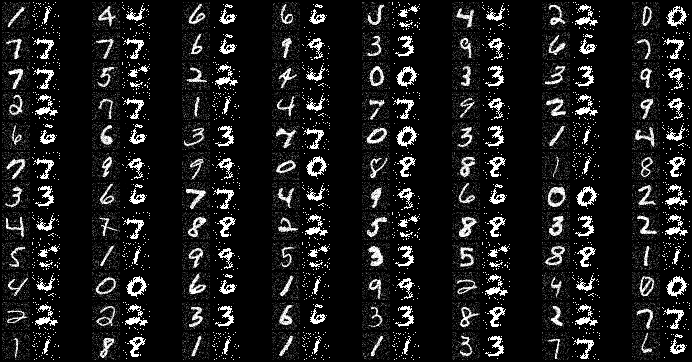 1 1 4 4 6 6 6 6 5 5 4 4 2 2 0 0
7 7 7 7 6 6 9 9 3 3 9 9 6 6 7 7
7 7 5 5 2 2 4 4 0 0 3 3 3 3 9 9
2 2 7 7 1 1 4 4 7 7 9 9 2 2 9 9
6 6 6 6 3 3 7 7 0 0 3 3 1 1 4 4
7 7 9 9 9 9 0 0 8 8 8 8 1 1 8 8
3 3 6 6 7 7 4 4 9 9 6 6 0 0 2 2
4 4 7 7 8 8 2 2 5 5 8 8 3 3 2 2
5 5 1 1 9 9 5 5 3 3 5 5 8 8 1 1
4 4 0 0 6 6 1 1 9 9 2 2 4 4 0 0
2 2 2 2 3 3 6 6 3 3 8 8 2 2 7 7
1 1 8 8 1 1 1 1 1 1 3 3 7 7 6 6